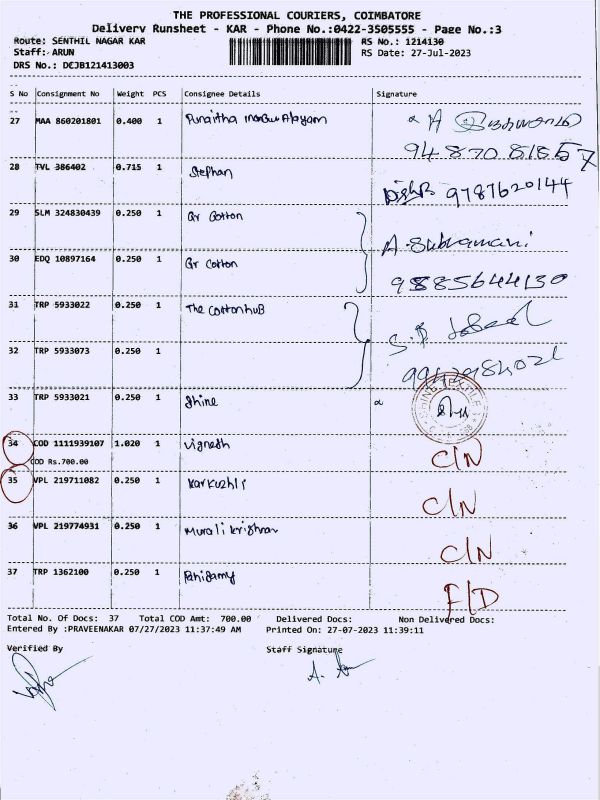 THE PROFESSIONAL COURIERS, COIMBATORE
Delivery Runsheet - KAR - Phone No.:0422-3505555 - Page No.:3
Route: SENTHIL NAGAR KAR RS No.: 1214130
Staff: ARUN RS Date: 27-Jul-2023
DRS No.: DCJB121413003
S No Consignment No Weight PCS Consignee Details Signature
27 MAA 860201801 0.400 1
9487081857
28 TVL 386402 0.715 1 Stephan
9787620144
29 SLM 324830439 0.250 1 Gr Cotton
A. Subramani
30 EDQ 10897164 0.250 1 Gr Cotton
9885644130
31 TRP 5933022 0.250 1 The Cottonhub
32 TRP 5933073 0.250 1
33 TRP 5933021 0.250 1 Shine
34 COD 1111939107 1.020 1 Vignesh C/N
COD Rs.700.00
35 VPL 219711082 0.250 1 Karkuzhli C/N
36 VPL 219774931 0.250 1 Murali Krishnan C/N
37 TRP 1362100 0.250 1 F/D
Total No. Of Docs: 37 Total COD Amt: 700.00 Delivered Docs: Non Delivered Docs:
Entered By :PRAVEENAKAR 07/27/2023 11:37:49 AM Printed On: 27-07-2023 11:39:11
Verified By Staff Signature